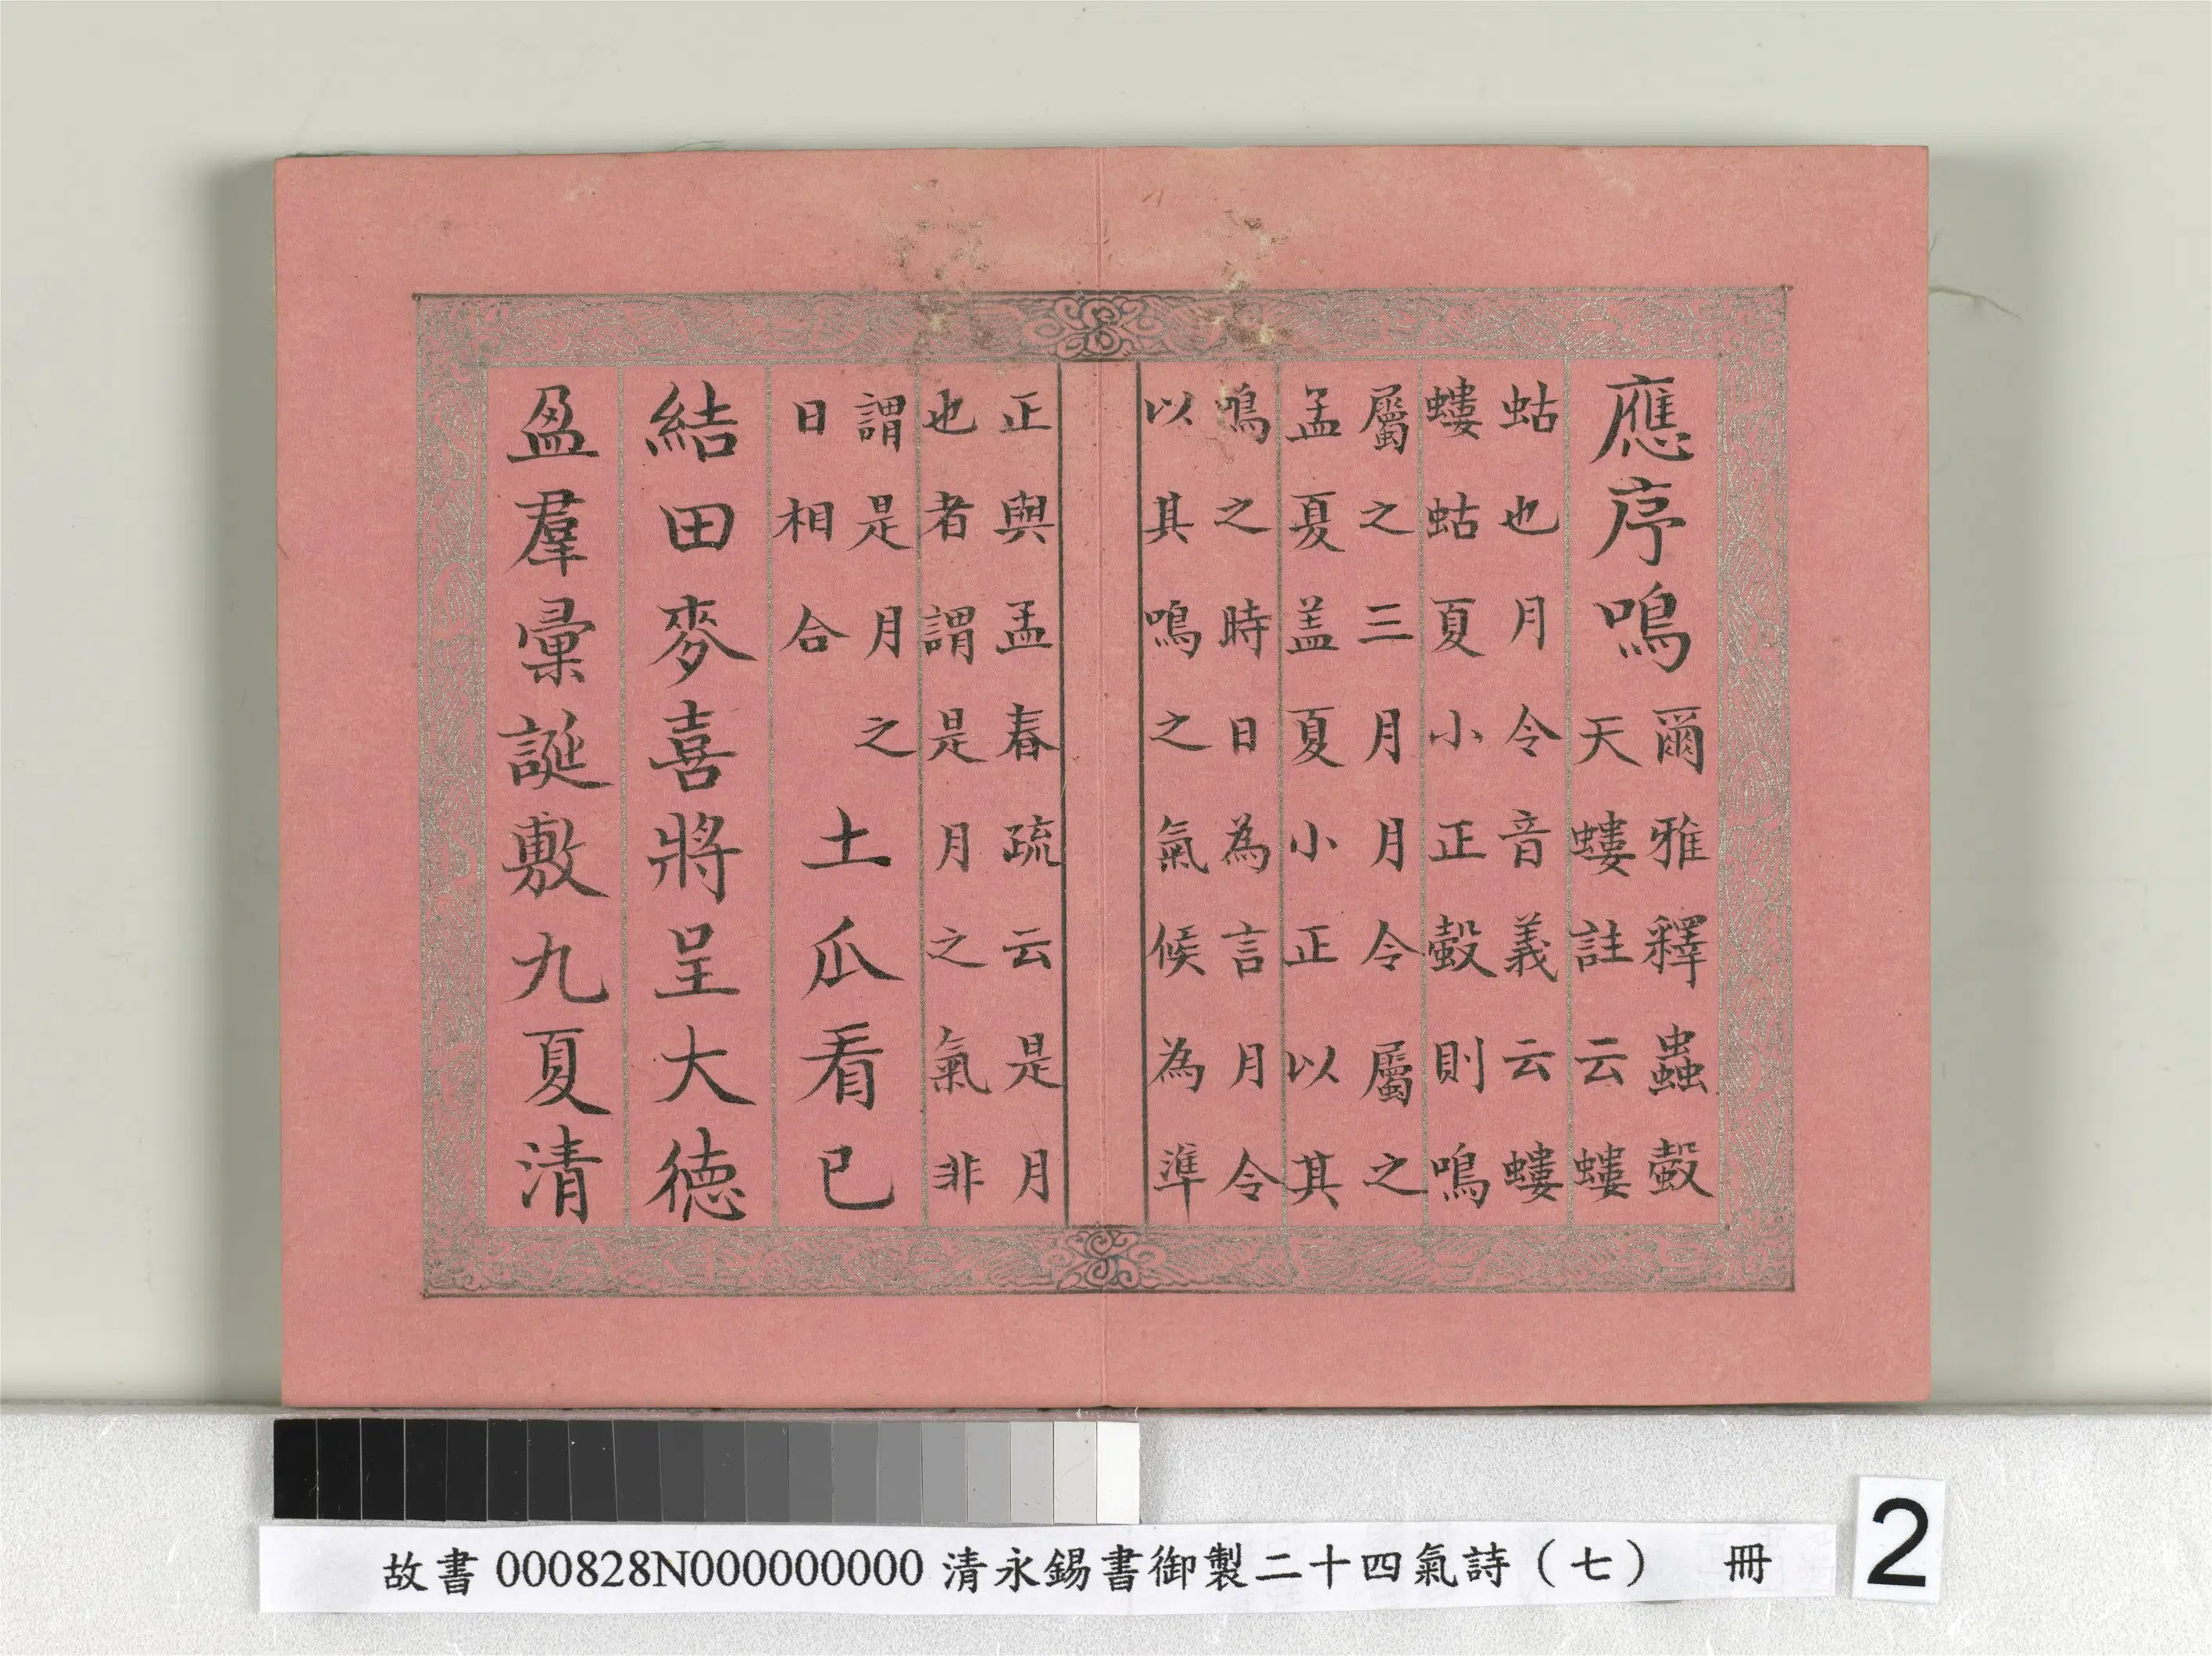 應序鳴
爾雅釋蟲螜
天螻註云螻
蛄也月令音義云螻
螻蛄夏小正螜則鳴
屬之三月月令屬之
孟夏盖夏小正以其
鳴之時日為言月令
以其鳴之氣候為準
正與孟春疏云是月
也者謂是月之氣非
謂是月之
日相合
土瓜看已
結田麥喜將呈大徳
盈羣彙誕敷九夏清
故書 000828N000000000 清永錫書御製二十四氣詩（七） 冊
2